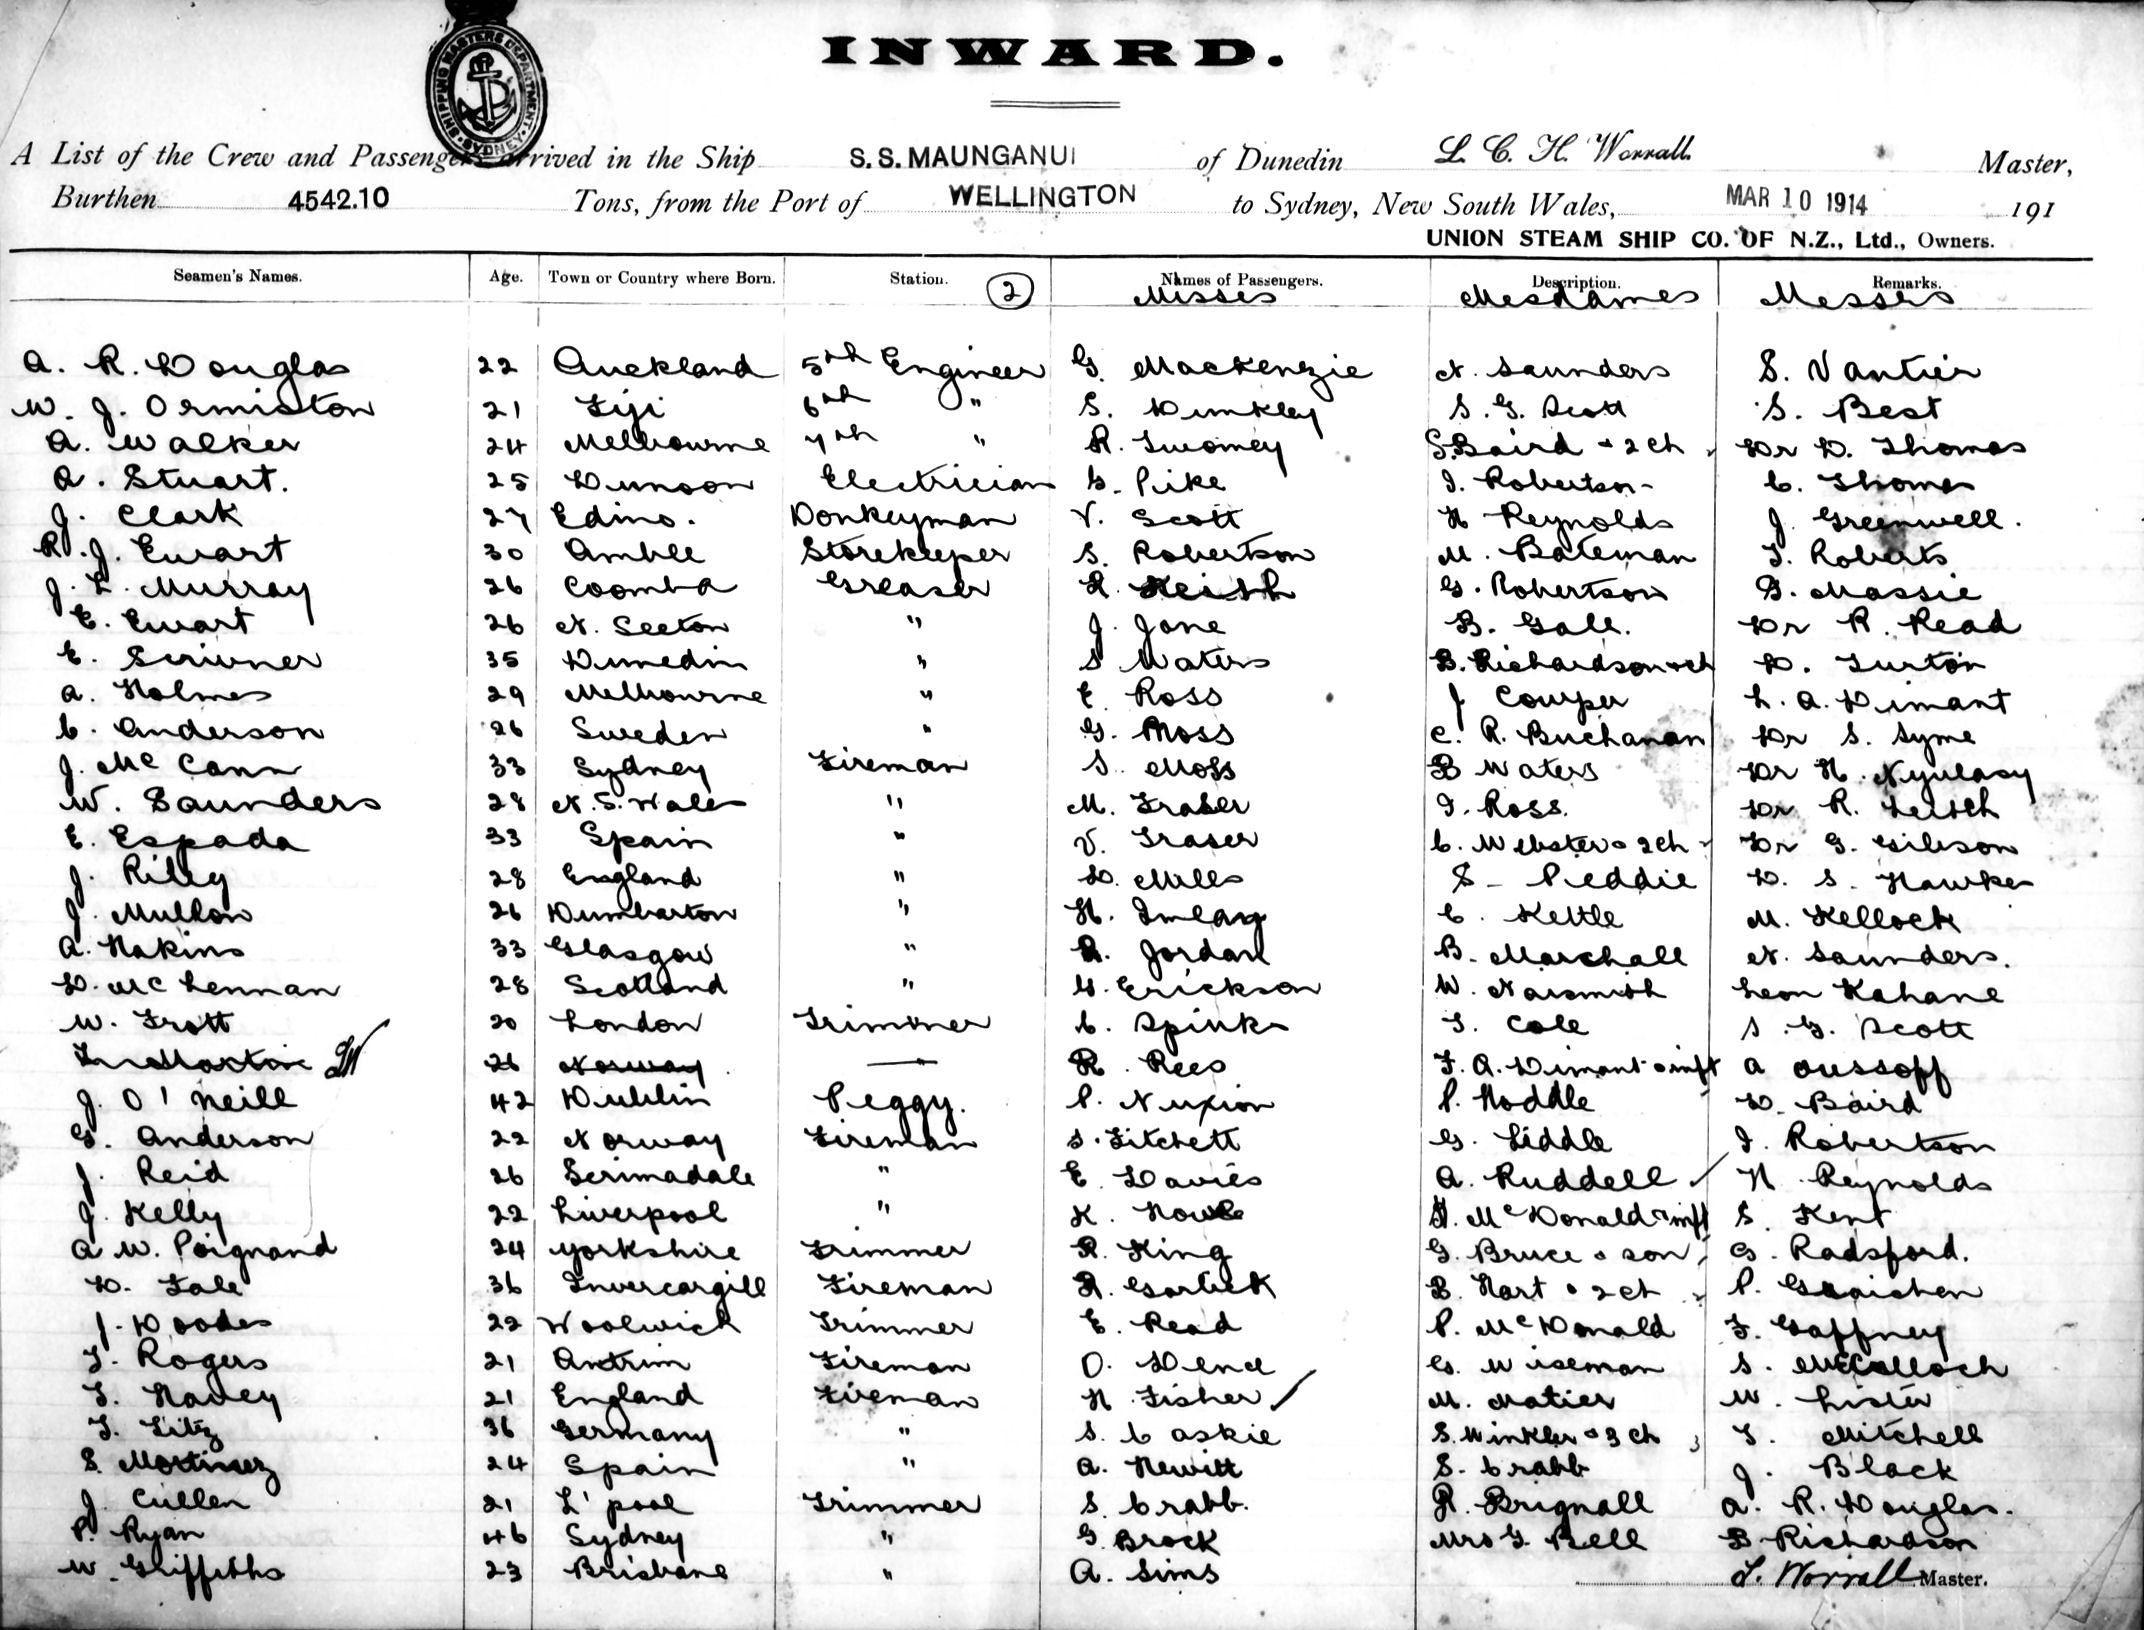 INWARD.
SHIPPING MASTERS DEPARTMENT SYDNEY
A List of the Crew and Passengers arrived in the Ship S.S. MAUNGANUI of Dunedin L. C. H. Worrall Master,
Burthen 4542.10 Tons, from the Port of WELLINGTON to Sydney, New South Wales, MAR 10 1914 191
UNION STEAM SHIP CO. OF N.Z., Ltd., Owners.
Seamen's Names. Age. Town or Country where Born. Station. 2 Names of Passengers. Description. Remarks.
Misses Mesdames Messrs
A. R. Douglas 22 Auckland 5th Engineer G. Mackenzie N. Saunders S. Vantier
W. J. Ormiston 21 Fiji 6th " S. Dunkley S. G. Scott S. Best
A. Walker 24 Melbourne 7th " R. Twomey S. Baird & 2 ch Dr D. Thomas
A. Stuart. 25 Dunoon Electrician G. Pike I. Robertson C. Thomas
J. Clark 27 Edino. Donkeyman V. Scott H Reynolds J. Greenwell.
R. J. Ewart 30 Amble Storekeeper S. Robertson M. Bateman T. Roberts
J. L. Murray 26 Coomba Greaser R. Keith G. Robertson G. Massie
E. Ewart 26 N. Seeton " J. Jane B. Gale. Dr R. Read
E. Scrivner 35 Dunedin " S Waters B. Richardson & ch D. Turton
A. Holmes 29 Melbourne " E Ross J Cowper L. A. Dimant
C. Anderson 26 Sweden " G. Moss C. R. Buchanan Dr S. Syme
J. McCann 33 Sydney Fireman S. Moss B Waters Dr H. Nyulasy
W. Saunders 28 N. S. Wales " M. Fraser I. Ross. Dr R.
E. Espada 33 Spain " V. Fraser C. Webster & 2 ch Dr G. Gibson
J. Riley 28 England " D. Mills S. Peddie D. S. Hawkes
J. Mullon 26 Dumbarton " H. Imlay C. Kettle M. Kellock
A. Hakins 33 Glasgow " R. Jordan B. Marshall N. Saunders.
D. McLennan 28 Scotland " G. Erickson W. Naismith Leon Kahane
W. Trott 20 London Trimmer C. Spinks T. Cole S. G. Scott
26 Norway " R. Rees F. A. Dimant & inft A Oussoff
J. O'Neill 42 Dublin Peggy. P. Nuxion P. Hoddle D. Baird
G. Anderson 22 Norway Fireman S. Fitchett G. Liddle I. Robertson
J. Reid 26 Serimadale " E. Davies A. Ruddell H Reynolds
J. Kelly 22 Liverpool " K. Howe McDonald & inft S. Kent
A W. Poignand 24 Yorkshire Trimmer R. King G. Bruce & son G. Radsford.
D. Tale 36 Invercargill Fireman R. Garlick B. Hart & 2 ch P. Graichen
J. Doodes 22 Woolwich Trimmer E. Read P. McDonald F. Gaffney
T. Rogers 21 Antrim Fireman O. Dence G. Wiseman S. McCulloch
T. Havey 21 England Fireman H. Fisher M. Matier W. Lister
T. Fitz 36 Germany " S. Caskie S. Winkler & 3 ch T. Mitchell
S. Martinez 24 Spain " A. Hewitt S. Crabb J. Black
J. Cullen 21 L'pool Trimmer S. Crabb. R. Brignall A. R. Douglas.
P. Ryan 46 Sydney " G. Brock Mrs G. Bell B Richardson
W. Griffiths 23 Brisbane " A. Sims L. Worrall Master.